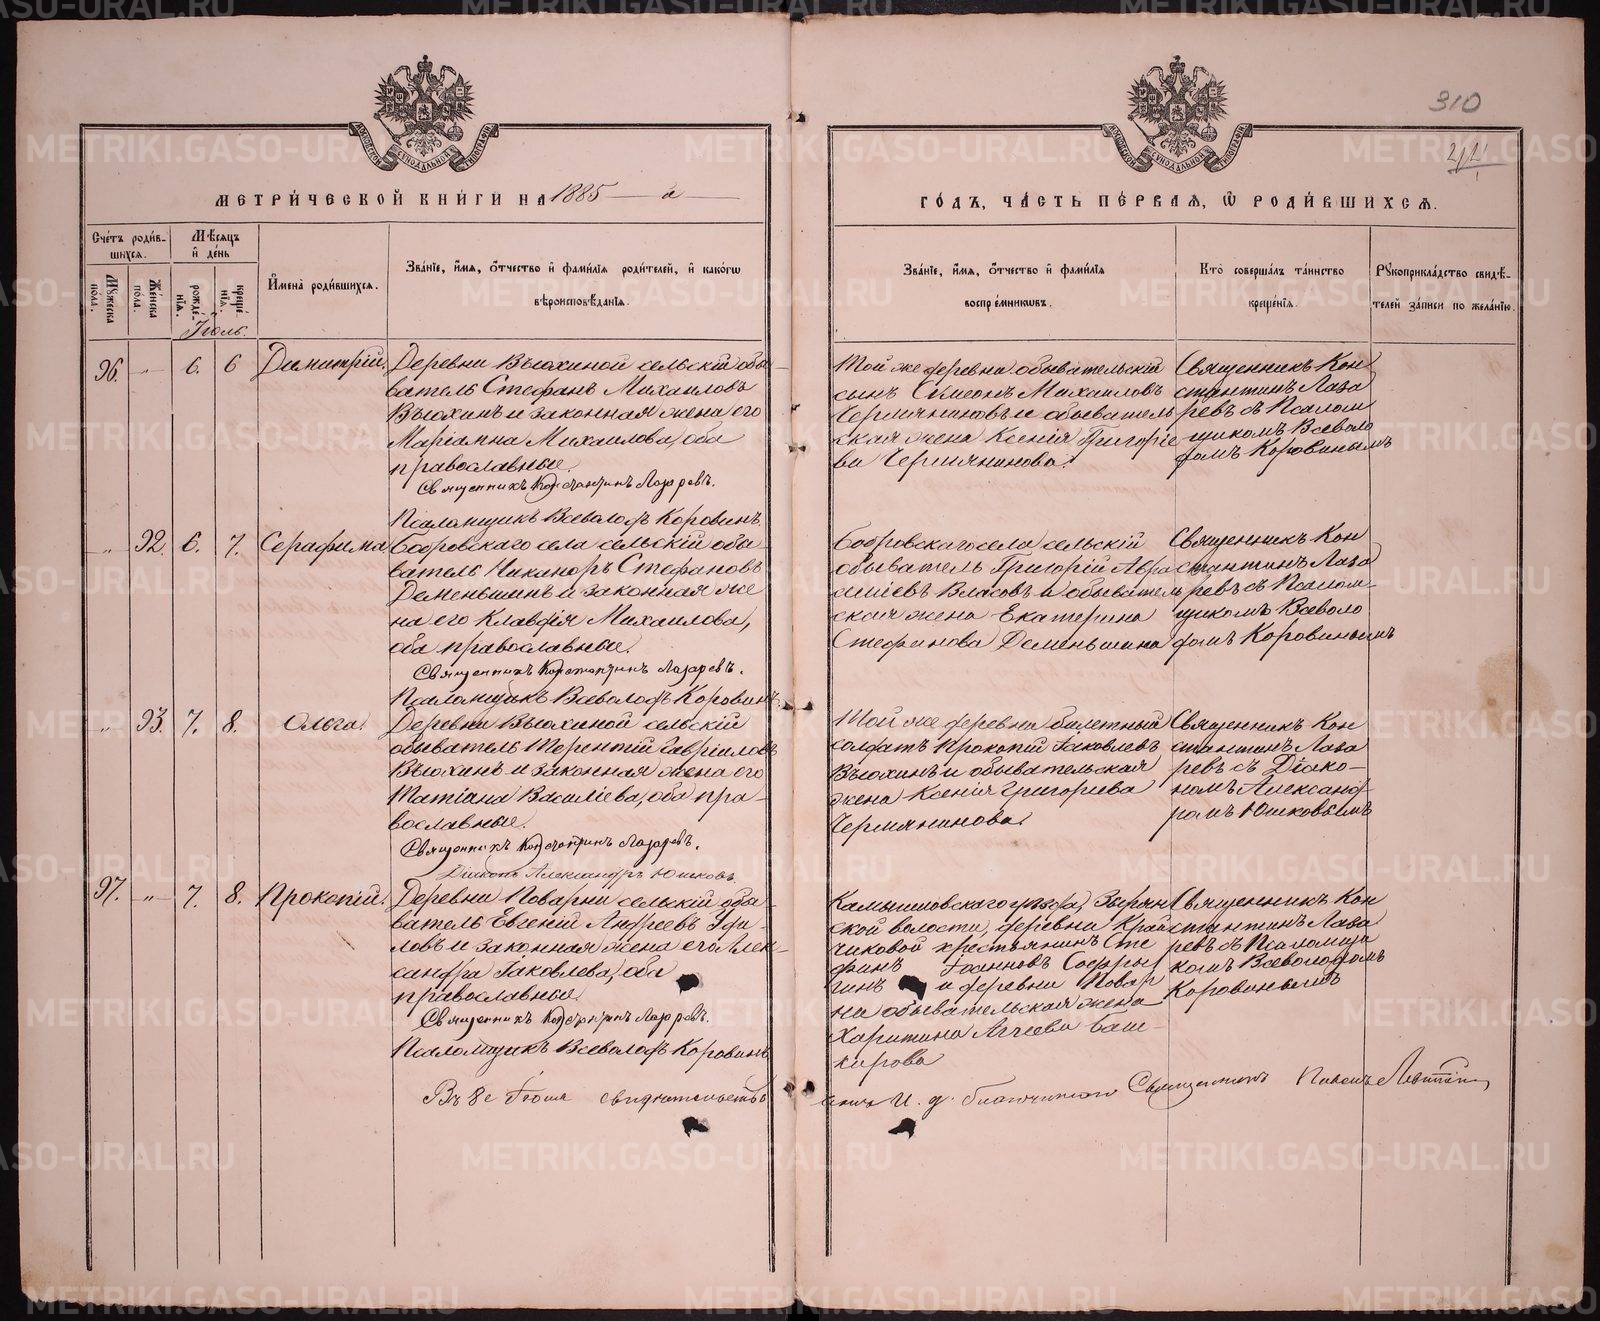 310
МЕТРИ́ЧЕСКОЙ КНИ́ГИ НА 1885 — й —
ГО́ДЪ, ЧА́СТЬ ПЕ́РВАЯ, Ѿ РОДИ́ВШИХСѦ.
Сче́тъ роди́в-
шихсѧ.
Мѣ́сѧцъ
и҆ де́нь
Мꙋ́жеска по́ла.
Же́нска по́ла.
рожде́-
нїѧ.
креще́
нїѧ.
И҆мена̀ роди́вшихсѧ.
Зва́нїе, и҆́мѧ, ѻ҆́тчество и҆ фами́лїѧ роди́телей, и҆ како́гѡ
вѣроисповѣ́данїѧ.
Зва́нїе, и҆́мѧ, ѻ҆́тчество и҆ фами́лїѧ
воспрїе́мникѡвъ.
Кто̀ соверша́лъ та́инство
креще́нїѧ.
Рꙋкоприкла́дство свидѣ́-
телей за́писи по жела́нїю.
Іюль.
96. -„- 6. 6 Димитрій.
Деревни Вьюхиной сельскій обы-
ватель Стефанъ Михаиловъ
Вьюхинъ и законная жена его
Маріамна Михаилова, оба
православные.
Священникъ Константинъ Лазаревъ.
Псаломщикъ Всеволодъ Коровинъ.
Той же деревни обывательскій
сынъ Симеонъ Михаиловъ
Чермяниновъ и обыватель
ская жена Ксенія Григоріе
ва Чермянинова.
Священникъ Кон
стантинъ Лаза
ревъ съ Псалом
щикомъ Всеволо
домъ Коровинымъ
-„- 92. 6. 7. Серафима
Бобровскаго села сельскій обы-
ватель Никаноръ Стефановъ
Деменьшинъ и законная же
на его Клавдія Михаилова,
оба православные.
Священникъ Константинъ Лазаревъ.
Псаломщикъ Всеволодъ Коровинъ.
Бобровскаго села сельскій
обыватель Григорій Афа
сіевъ Власовъ и обыватель
ская жена Екатерина
Стефанова Деменьшина
Священникъ Кон
стантинъ Лаза
ревъ съ Псалом-
щикомъ Всеволо
домъ Коровинымъ
„ 93. 7. 8. Ольга.
Деревни Вьюхиной сельскій
обыватель Терентій Гавріиловъ
Вьюхинъ и законная жена его
Татіана Василіева, оба пра-
вославные.
Священникъ Константинъ Лазаревъ.
Діаконъ Александръ Юшковъ.
Той же деревни билетный
солдатъ Прокопій Іаковлевъ
Вьюхинъ и обывательская
жена Ксенія Григорьева
Чермянинова.
Священникъ Кон
стантинъ Лаза
ревъ съ Діако-
номъ Александ
ромъ Юшковымъ
97. -„- 7. 8. Прокопій.
Деревни Поварни сельскій обы-
ватель Евгеній Андреевъ
ловъ и законная жена его Алек-
сандра Іаковлева, оба
православные.
Священникъ Константинъ Лазаревъ.
Псаломщикъ Всеволодъ Коровинъ
Камышловскаго уѣзда, Зырян
ской волости, деревни Край
чиковой крестьянинъ Сте
фанъ Іоанновъ Софры
гинъ и деревни Повар
ни обывательская жена
Харитина Баш-
кирова
Священникъ Кон
стантинъ Лаза
ревъ съ Псаломщи
комъ Всеволодомъ
Коровинымъ
И. д. Благочиннаго Священникъ
METRIKI.GASO-URAL.RU